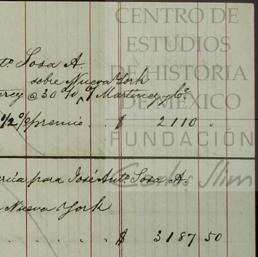 CENTRO DE
ESTUDIOS
DE HISTORIA
DE MÉXICO
FUNDACIÓN
Carlos Slim
Sosa A
sobre Nueva York
@ 30 d/v, y Martinez y Co.
1/2 % premio . $ 2110 .
para José Anto. Sosa A.
Nueva York
$ 3187 50